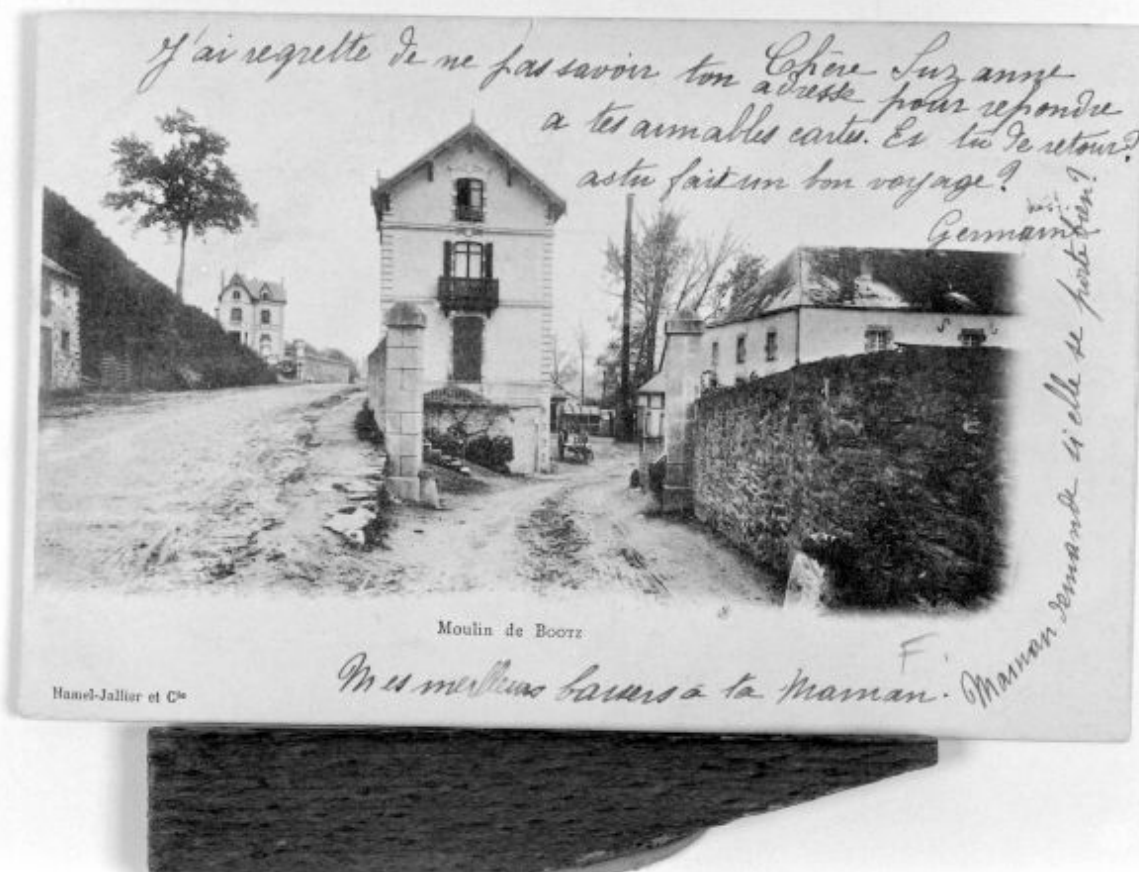 Chère Suzanne
J'ai regrette de ne pas savoir ton adresse pour repondre
a tes aimables cartes. Es tu de retour?
astu fait un bon voyage?
Germaine
Moulin de BOOTZ
Hamel-Jallier et Cie
Mes meilleurs baisers a ta Maman.
F.
Maman demande si elle se porte bien?